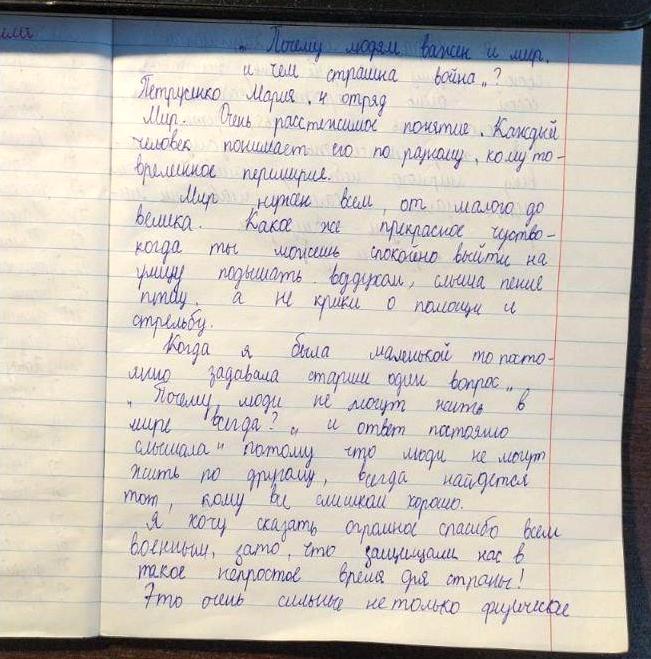 ели
„ Почему людям важен и мир.
и чем страшна война „?
Петрусенко Мария. 4 отряд
Мир. Очень расстежимое понятие. Каждый
человек понимает его по разному, кому то-
временное перимирие.
Мир нужен всем, от малого до
велика. Какое же прекрасное чуство-
когда ты можешь спокойно выйти на
улицу подышать воздухом, слыша пение
птиц, а не крики о помощи и
стрельбу.
Когда я была маленькой то посто-
яно задавала старшим один вопрос „
„ Почему люди не могут жить в
мире всегда? „ и ответ постояно
слышала „ потому что люди не могут
жить по другому, всегда найдется
тот, кому и слишком хорошо.
Я хочу сказать огромное спасибо всем
военным, зато, что защищали нас в
такое непростое время для страны!
Это очень сильные не только физические